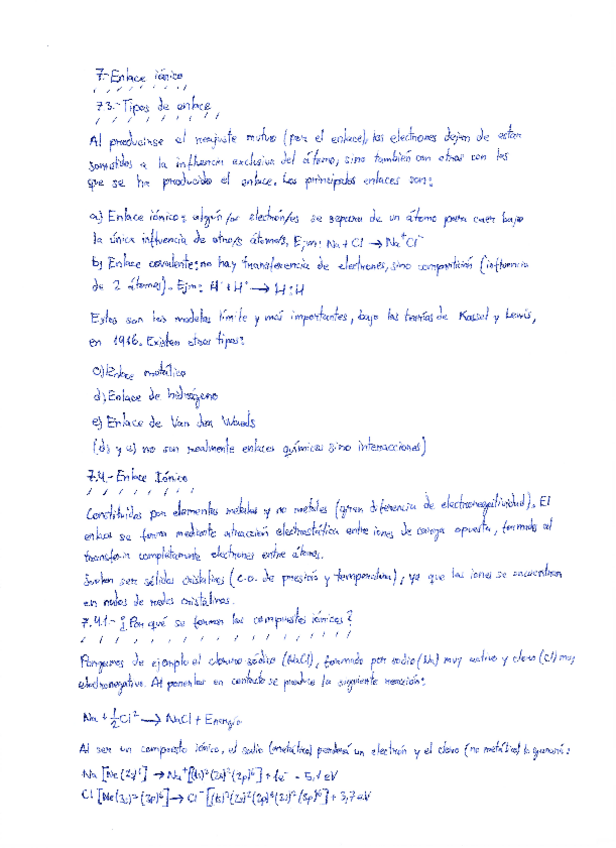 7.-Enlace iónico
7.3.-Tipos de enlace
Al producirse el reajuste mutuo (por el enlace), los electrones dejan de estar
sometidos a la influencia exclusiva del átomo, sino también con otros con los
que se ha producido el enlace. Los principales enlaces son:
a) Enlace iónico: algún/os electrón/es se separa de un átomo para caer bajo
la única influencia de otro/s átomo/s. Ejm: Na + Cl → Na⁺Cl⁻
b) Enlace covalente: no hay transferencia de electrones, sino compartición (influencia
de 2 átomos). Ejm: H· + H· → H:H
Estos son los modelos límite y más importantes, bajo las teorías de Kossel y Lewis,
en 1916. Existen otros tipos:
c) Enlace metálico
d) Enlace de hidrógeno
e) Enlace de Van der Waals
(d) y e) no son realmente enlaces químicos sino interacciones)
7.4.- Enlace Iónico
Constituidos por elementos metales y no metales (gran diferencia de electronegatividad). El
enlace se forma mediante atracción electrostática entre iones de carga opuesta, formados al
transferir completamente electrones entre átomos.
Suelen ser sólidos cristalinos (c.o. de presión y temperatura), ya que los iones se encuentran
en nudos de redes cristalinas.
7.4.1.- ¿Por qué se forman los compuestos iónicos?
Pongamos de ejemplo el cloruro sódico (NaCl), formado por sodio (Na) muy activo y cloro (Cl) muy
electronegativo. Al ponerlos en contacto se produce la siguiente reacción:
Na + ½Cl² → NaCl + Energía
Al ser un compuesto iónico, el sodio (metálico) perderá un electrón y el cloro (no metálico) lo ganará:
Na [Ne(3s)¹] → Na⁺[(1s)²(2s)²(2p)⁶] + 1e⁻ - 5,1 eV
Cl [Ne(3s)²(3p)⁵] → Cl⁻[(1s)²(2s)²(2p)⁶(3s)²(3p)⁶] + 3,7 eV